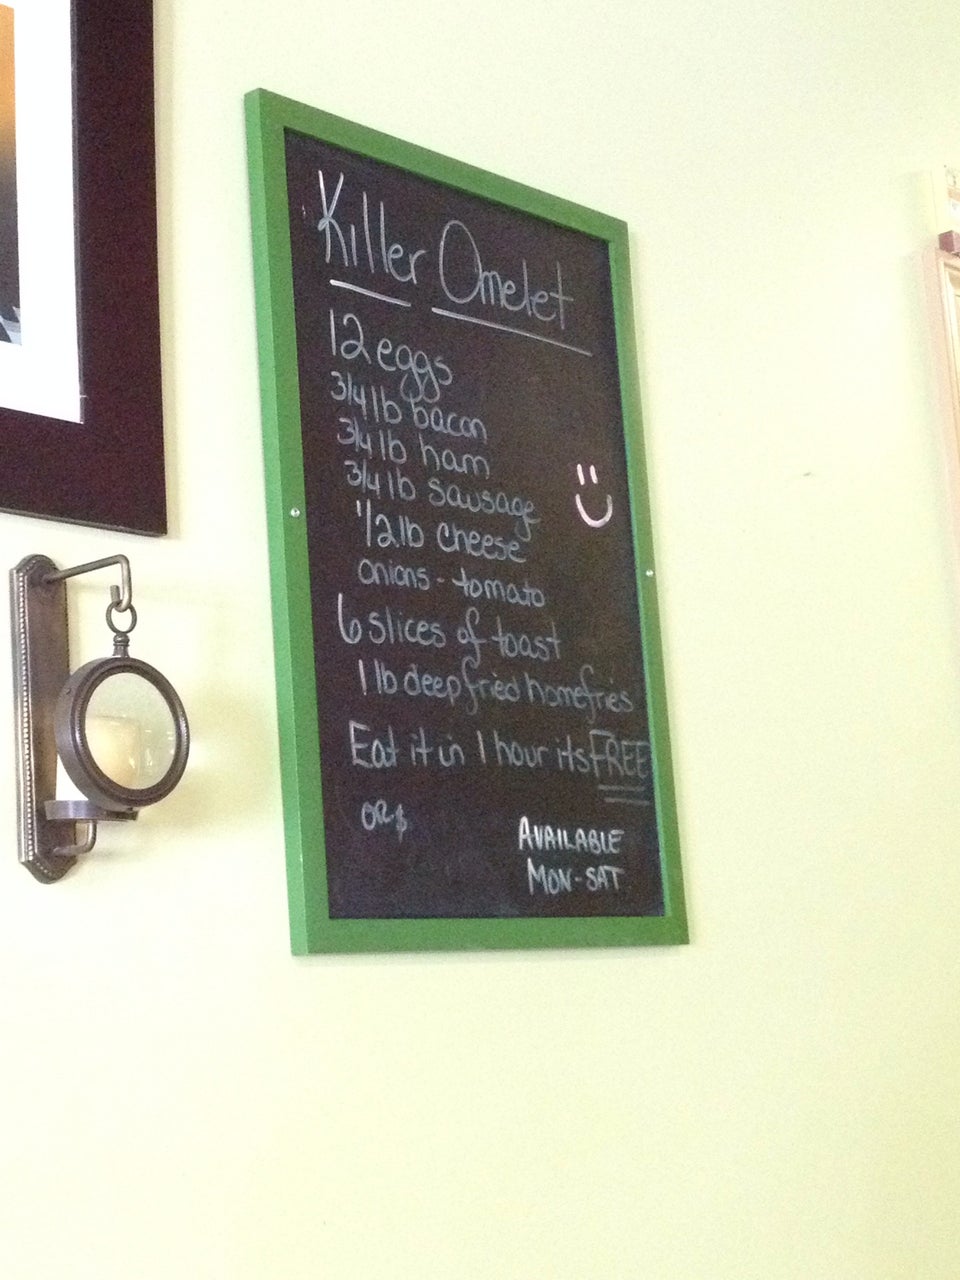 Killer Omelet
12 eggs
3/4 lb bacon
3/4 lb ham
3/4 lb sausage
1/2 lb cheese
onions - tomato
6 slices of toast
1 lb deep fried homefries
Eat it in 1 hour its FREE
OR $
AVAILABLE
MON-SAT